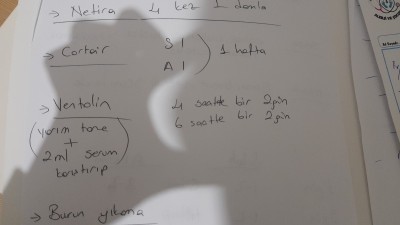 → Netira 4 kez 1 damla
→ Cortair S 1
A 1 ) 1 hafta
→ Ventolin 4 saatte bir 2 gün
(yarım tane 6 saatte bir 2 gün
+
2 ml serum
karıştırıp)
→ Burun yıkama